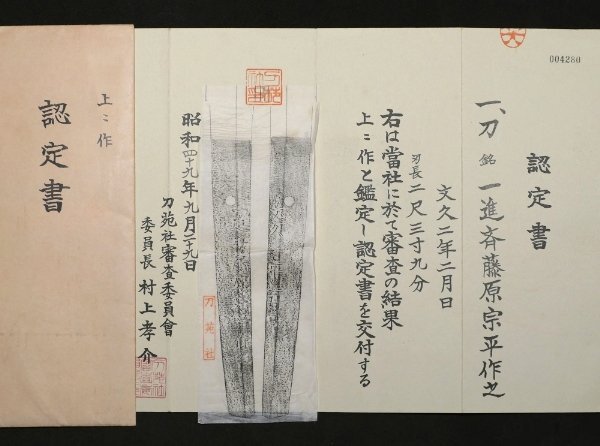 004280
認定書
一、刀 銘 一進斉藤原宗平作之
文久二年二月日
刃長 二尺三寸九分
右は當社に於て審査の結果
上〻作と鑑定し認定書を交付する
刀苑社
昭和四十九年九月二十九日
刀苑社審査委員會
委員長 村上孝介
上〻作
認定書